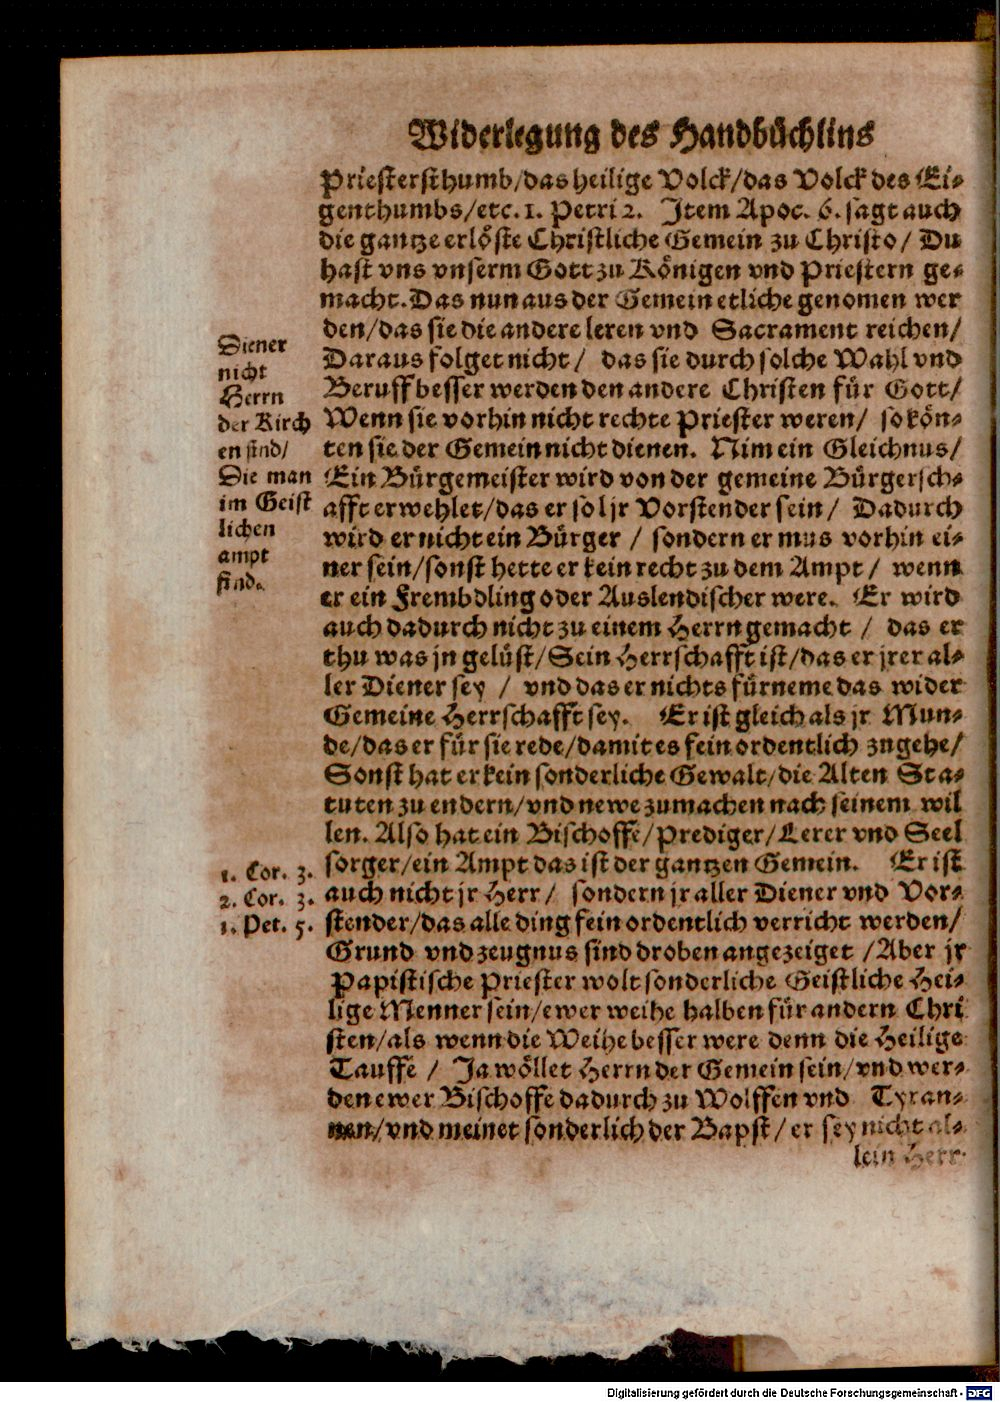 Widerlegung des Handbüchlins
Priestersthumb/das heilige Volck/das Volck des Ei-
genthumbs/etc. 1. Petri 2. Item Apoc. 6. sagt auch
die gantze erlöste Christliche Gemein zu Christo/ Du
hast vns vnserm Gott zu Königen vnd Priestern ge-
macht. Das nun aus der Gemein etliche genomen wer
den/das sie die andere leren vnd Sacrament reichen/
Daraus folget nicht/ das sie durch solche Wahl vnd
Beruff besser werden den andere Christen für Gott/
Wenn sie vorhin nicht rechte Priester weren/ so kön-
ten sie der Gemein nicht dienen. Nim ein Gleichnus/
Ein Bürgemeister wird von der gemeine Bürgersch-
afft erwehlet/das er sol jr Vorstender sein/ Dadurch
wird er nicht ein Bürger / sondern er mus vorhin ei-
ner sein/sonst hette er kein recht zu dem Ampt/ wenn
er ein Frembdling oder Auslendischer were. Er wird
auch dadurch nicht zu einem Herrn gemacht / das er
thu was jn gelüst/Sein Herrschafft ist/das er jrer al-
ler Diener sey / vnd das er nichts fürneme das wider
Gemeine Herrschafft sey. Er ist gleich als jr Mun-
de/das er für sie rede/damit es fein ordentlich zugehe/
Sonst hat er kein sonderliche Gewalt/die Alten Sta-
tuten zu endern/vnd newe zumachen nach seinem wil
len. Also hat ein Bischoffe/Prediger/Lerer vnd Seel
sorger/ein Ampt das ist der gantzen Gemein. Er ist
auch nicht jr Herr/ sondern jr aller Diener vnd Vor-
stender/das alle ding fein ordentlich verricht werden/
Grund vnd zeugnus sind droben angezeiget /Aber jr
Papistische Priester wolt sonderliche Geistliche Hei-
lige Menner sein/ewer weihe halben für andern Chri
sten/als wenn die Weihe besser were denn die Heilige
Tauffe / Ja wöllet Herrn der Gemein sein/vnd wer-
den ewer Bischoffe dadurch zu Wolffen vnd Tyran-
nen/vnd meinet sonderlich der Bapst/ er sey nicht al-
lein Herr
Diener
nicht
Herrn
der Kirch
en sind/
Die man
im Geist
lichen
ampt
find.
1. Cor. 3.
2. Cor. 3.
1. Pet. 5.
Digitalisierung gefördert durch die Deutsche Forschungsgemeinschaft - DFG